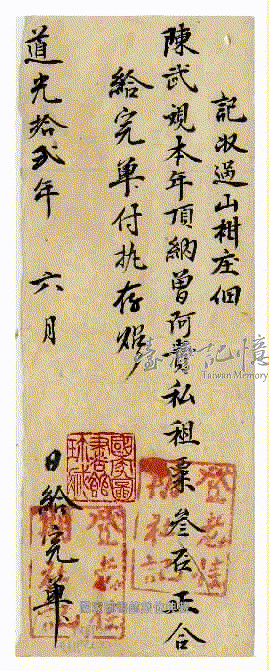 記收過山柑庄佃
陳武覌本年頂納曾阿貴私租粟叁石正合
給完單付執存炤
道光拾貳年 六月 日給完單
臺灣記憶
Taiwan Memory
國家圖書館珍藏